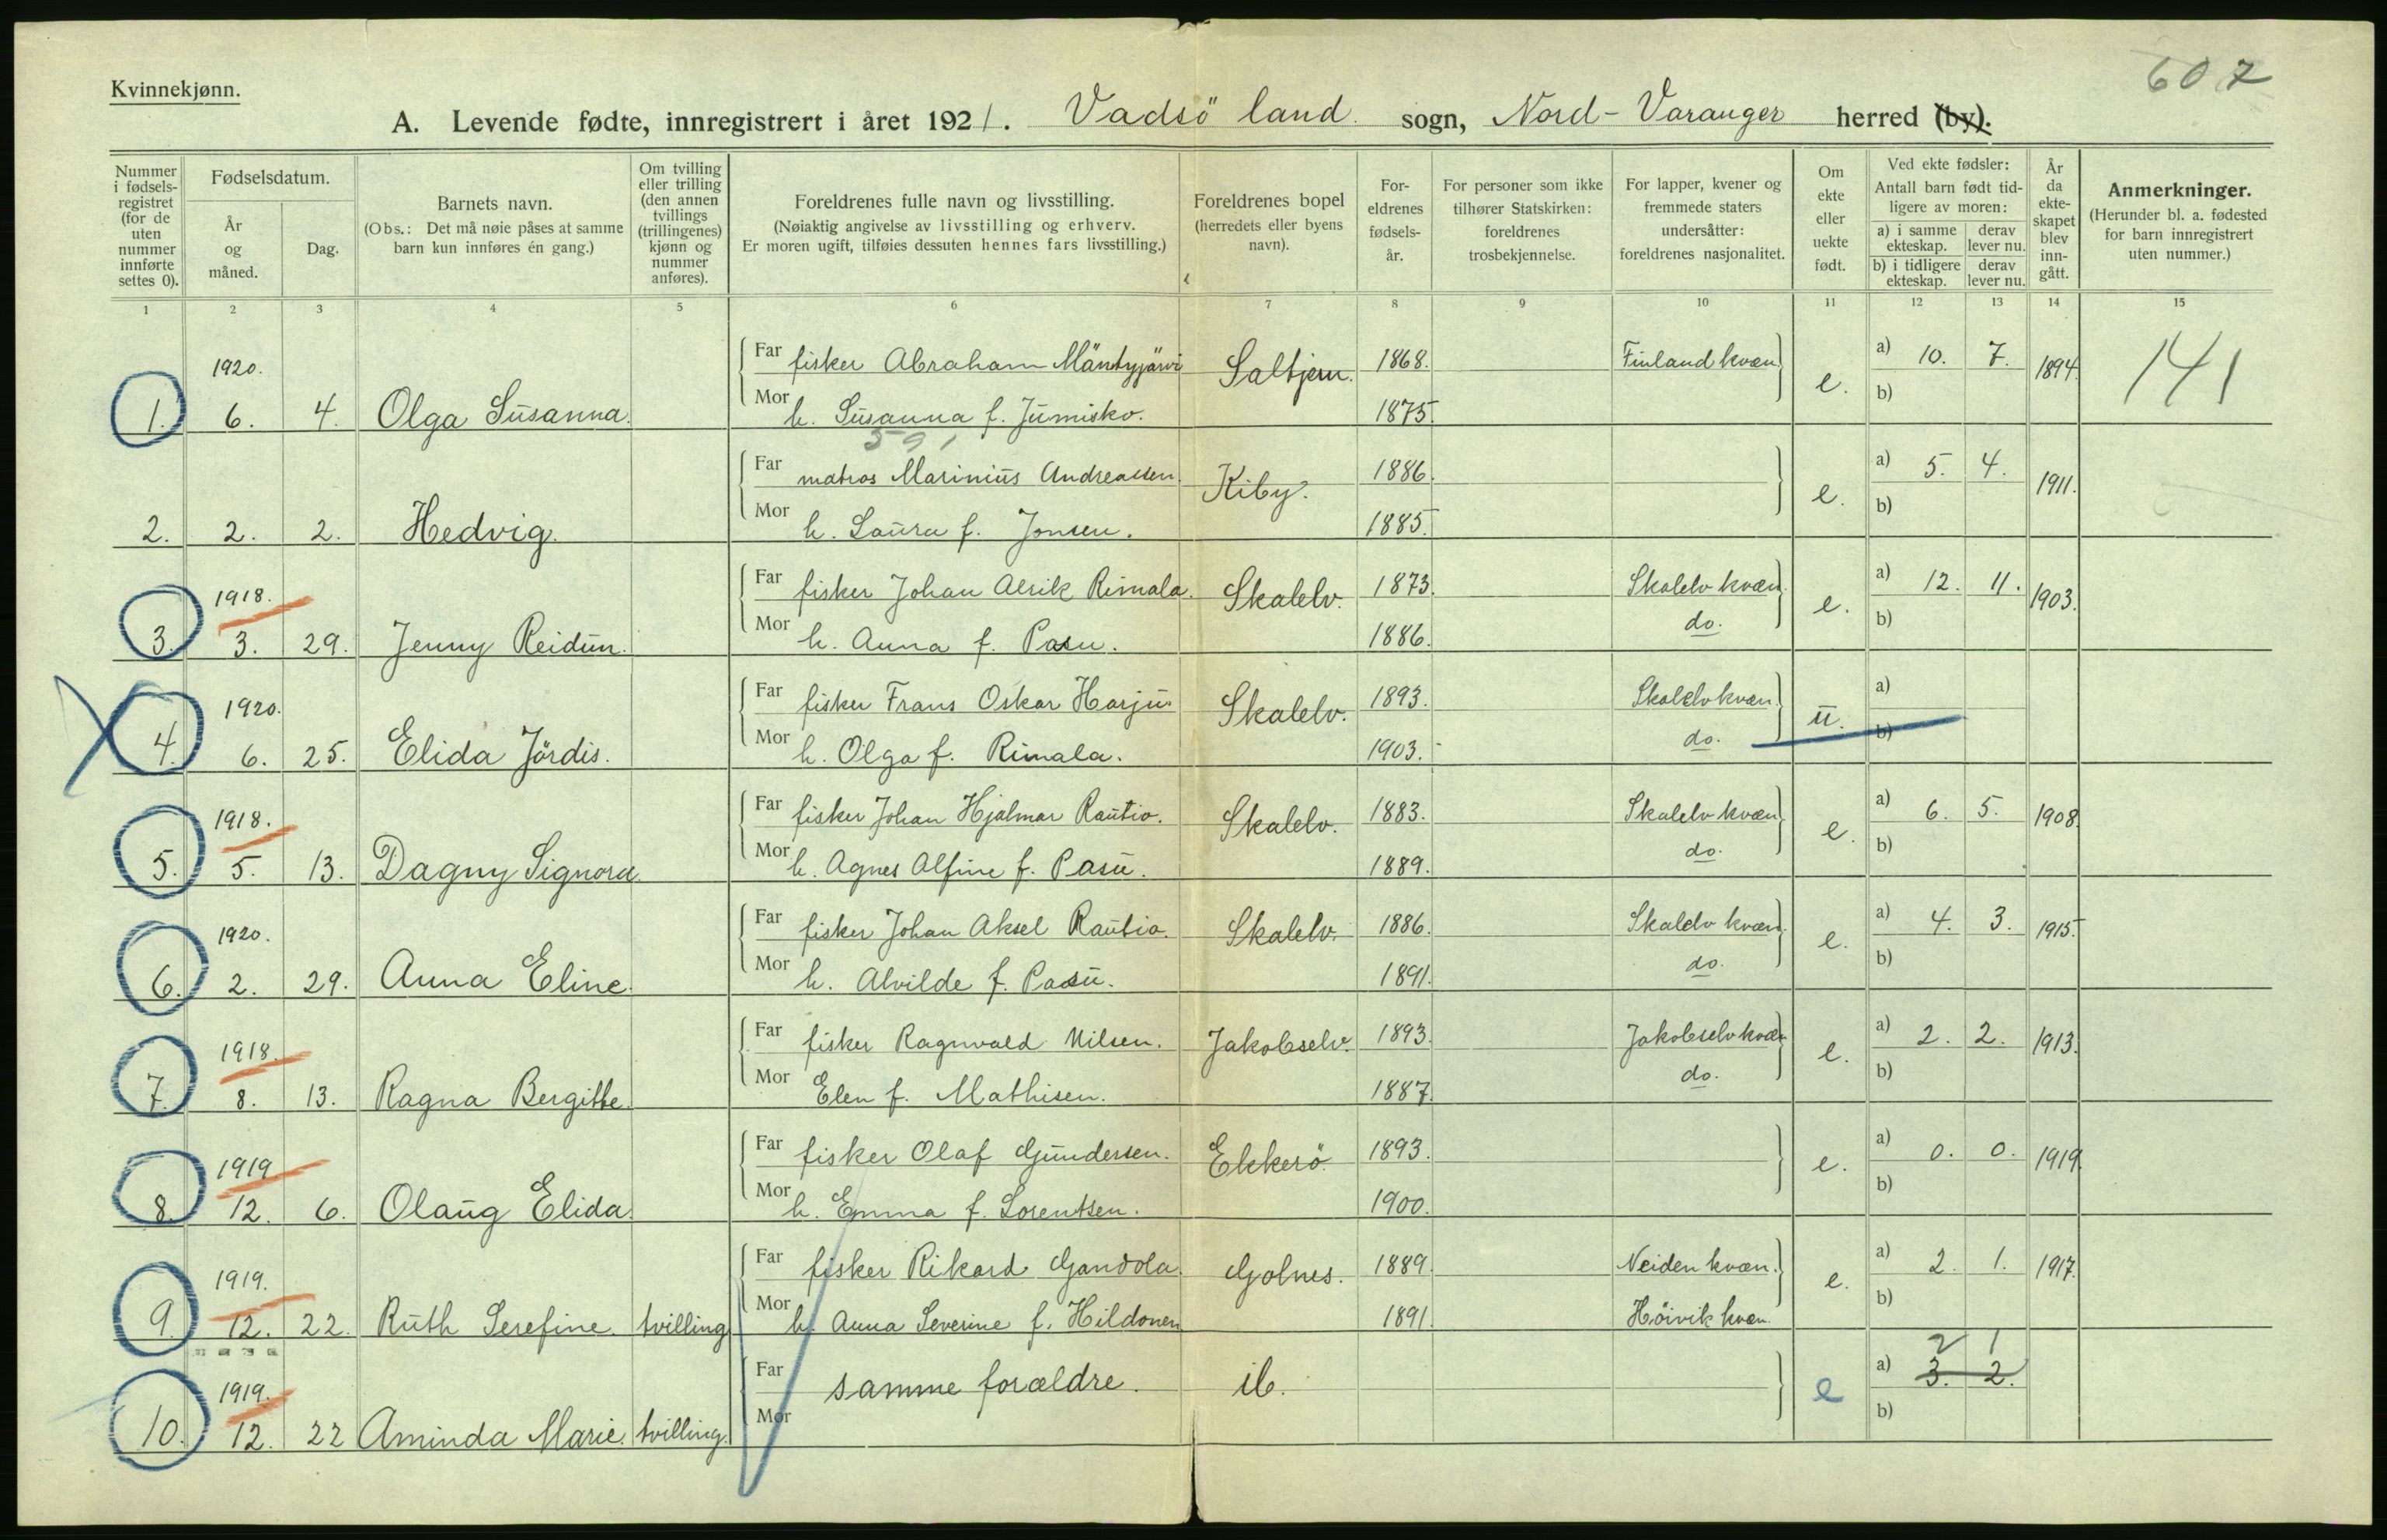 607
Kvinnekjønn.
A. Levende fødte, innregistrert i året 1921. Vadsö land. sogn, Nord-Varanger herred (by).
Nummer i fødsels-registret (for de uten nummer innførte settes 0).
Fødselsdatum.
År og måned.
Dag.
Barnets navn.
(Obs.: Det må nøie påses at samme barn kun innføres én gang.)
Om tvilling eller trilling (den annen tvillings (trillingenes) kjønn og nummer anføres).
Foreldrenes fulle navn og livsstilling.
(Nøiaktig angivelse av livsstilling og erhverv.
Er moren ugift, tilføies dessuten hennes fars livsstilling.)
Foreldrenes bopel
(herredets eller byens navn).
For-eldrenes fødsels-år.
For personer som ikke tilhører Statskirken: foreldrenes trosbekjennelse.
For lapper, kvener og fremmede staters undersåtter: foreldrenes nasjonalitet.
Om ekte eller uekte født.
Ved ekte fødsler:
Antall barn født tid-ligere av moren:
a) i samme ekteskap.
derav lever nu.
b) i tidligere ekteskap.
derav lever nu.
År da ekte-skapet blev inn-gått.
Anmerkninger.
(Herunder bl. a. fødested for barn innregistrert uten nummer.)
1 2 3 4 5 6 7 8 9 10 11 12 13 14 15
1920.
Far fisker Abraham Mäntyjärvi Saltjern. 1868. Finland kvæn e. a) 10. 7. 1894. 141
1. 6. 4. Olga Susanna. Mor h. Susanna f. Jumisko. 1875. b)
591
Far matros Marinius Andreassen. Kiby. 1886. e. a) 5. 4. 1911.
2. 2. 2. Hedvig. Mor h. Laura f. Jonsen. 1885. b)
1918.
Far fisker Johan Alrik Rimala. Skalelv. 1873. Skalelv kvæn. e. a) 12. 11. 1903.
3. 3. 29. Jenny Reidun. Mor h. Anna f. Pasu. 1886. do. b)
1920.
Far fisker Frans Oskar Harju. Skalelv. 1893. Skalelv kvæn. u. a)
4. 6. 25. Elida Jördis. Mor h. Olga f. Rimala. 1903. do. b)
1918.
Far fisker Johan Hjalmar Rautio. Skalelv. 1883. Skalelv kvæn e. a) 6. 5. 1908.
5. 5. 13. Dagny Signora. Mor h. Agnes Alfine f. Pasu. 1889. do. b)
1920.
Far fisker Johan Aksel Rautio. Skalelv. 1886. Skalelv kvæn. e. a) 4. 3. 1915.
6. 2. 29. Anna Eline. Mor h. Alvilde f. Pasu. 1891. do. b)
1918.
Far fisker Ragnvald Nilsen. Jakobselv. 1893. Jakobselv kvæn e. a) 2. 2. 1913.
7. 8. 13. Ragna Bergitte. Mor Elen f. Mathisen. 1887. do. b)
1919
Far fisker Olaf Gundersen. Ekkerö. 1893. e. a) 0. 0. 1919.
8. 12. 6. Olaug Elida. Mor h. Emma f. Lorentsen. 1900. b)
1919.
Far fisker Rikard Gandola. Golnes. 1889. Neiden kvæn. e. a) 2. 1. 1917.
9. 12. 22. Ruth Serefine. tvilling Mor h. Anna Severine f. Hildonen 1891. Höivik kvæn. b)
2 1
1919.
Far samme forældre. ib. e a) 3. 2.
10. 12. 22 Aminda Marie. tvilling. Mor b)